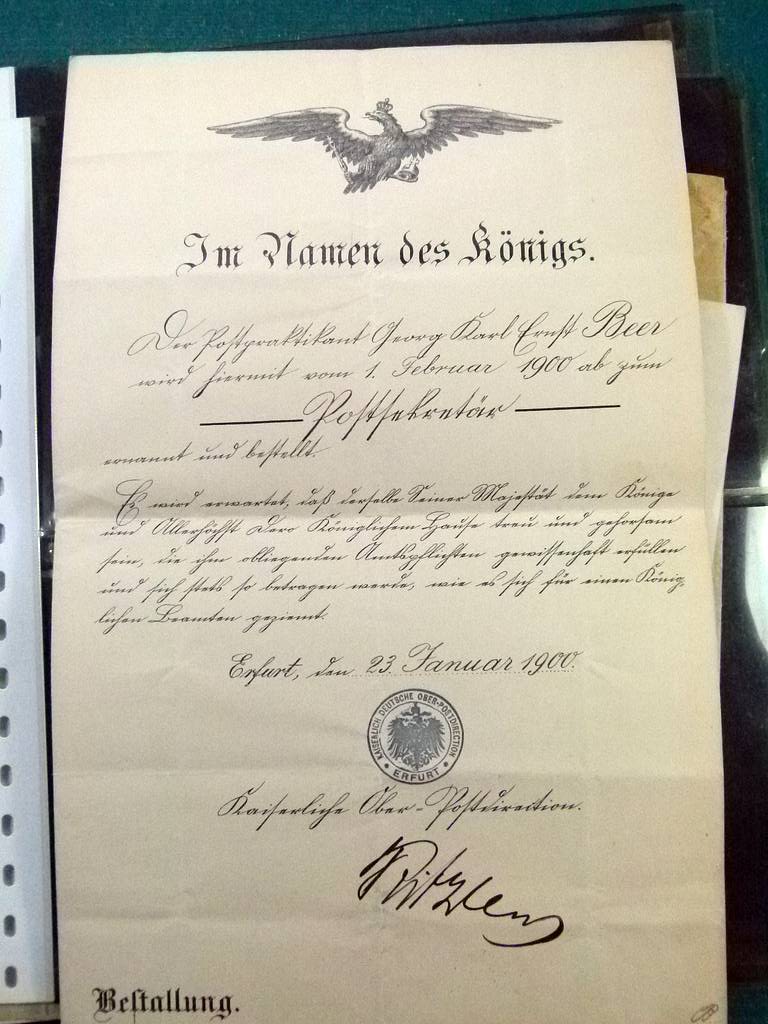 Im Namen des Königs.
Der Postpraktikant Georg Karl Ernst Beer
wird hiermit vom 1. Februar 1900 ab zum
Postsekretär
ernannt und bestellt.
Es wird erwartet, daß derselbe Seiner Majestät dem Könige
und Allerhöchst Dero Königlichem Hause treu und gehorsam
sein, die ihm obliegenden Amtspflichten gewissenhaft erfüllen
und sich stets so betragen werde, wie es sich für einen König-
lichen Beamten geziemt.
Erfurt, den 23. Januar 1900.
KAISERLICH DEUTSCHE OBER-POSTDIRECTION
ERFURT
Kaiserliche Ober-Postdirection.
Bestallung.